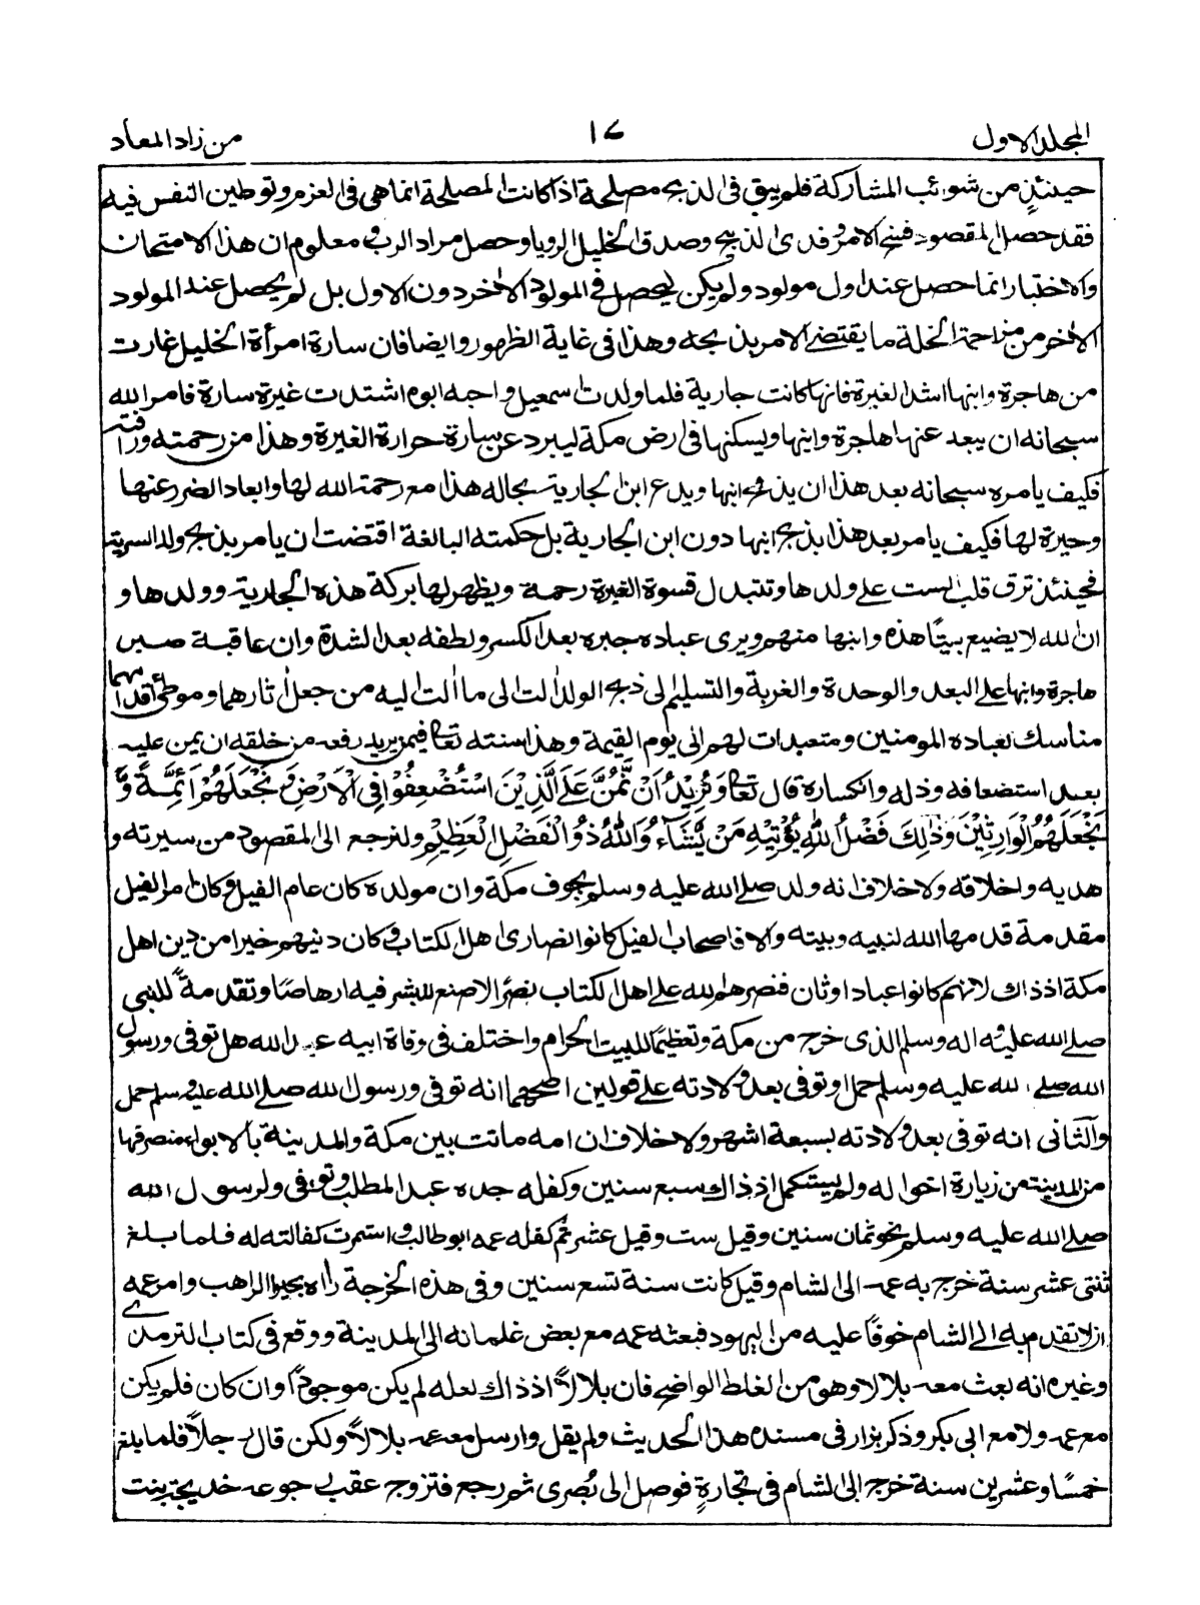 المجلد الاول
١٧
من زاد المعاد
حينئذٍ من شوئب المشاركة فلم يبق فى الذبح مصلحة اذا كانت المصلحة انما هى فى العزم وتوطين النفس فيه
فقد حصل المقصود فنسخ الامر وفدى الذبيح وصدق الخليل الرويا وحصل مراد الرب و معلوم ان هذا الامتحان
والاختبار انما حصل عند اول مولود ولم يكن ليحصل فى المولود الاٰخر دون الاول بل لم يحصل عند المولود
الاٰخر من مزاحمة الخلة ما يقتضے الامر بذبحه وهذا فى غاية الظهور وايضا فان سارة امرأة الخليل غارت
من هاجرة وابنها اشد الغيرة فانها كانت جارية فلما ولدت اسمعيل واحبه ابوه اشتدت غيرة سارة فامر الله
سبحانه ان يبعد عنها هاجرة وابنها ويسكنها فى ارض مكة ليبرد عن سارة حرارة الغيرة وهذا من رحمته ورافته
فكيف يامره سبحانه بعد هذا ان يذبح ابنها ويدع ابن الجارية بحاله هذا مع رحمة الله لها وابعاد الضرر عنها
وحيرة لها فكيف يامر بعد هذا بذبح ابنها دون ابن الجارية بل حكمته البالغة اقتضت ان يامر بذبح ولد السرية
فحينئذ ترق قلب الست على ولدها وتتبدل قسوة الغيرة رحمة ويظهر لها بركة هذه الجارية وولدها و
ان الله لا يضيع بيتًا هذه وابنها منهم ويرى عباده جبره بعد الكسر ولطفه بعد الشدة وان عاقبة صبر
هاجرة وابنها على البعد والوحدة والغربة والتسليم الى ذبح الولد اٰلت الى ما اٰلت اليه من جعل اٰثارهما وموطئ اقدامهما
مناسك لعباده المومنين ومتعبدات لهم الى يوم القيمة وهذا سنته تعالى فيمن يريد رفعه من خلقه ان يمن عليه
بعد استضعافه وذله وانكساره قال تعالى وَنُرِيْدُ اَنْ نَّمُنَّ عَلَى الَّذِيْنَ اسْتُضْعِفُوْا فِى الْاَرْضِ وَنَجْعَلَهُمْ اَئِمَّةً وَّ
نَجْعَلَهُمُ الْوَارِثِيْنَ وَذٰلِكَ فَضْلُ اللهِ يُؤْتِيْهِ مَنْ يَّشَآءُ وَاللهُ ذُو الْفَضْلِ الْعَظِيْمِ ولنرجع الى المقصود من سيرته و
هديه واخلاقه ولا خلاف انه ولد صلے الله عليه وسلم بجوف مكة وان مولده كان عام الفيل وكان امر الفيل
مقدمة قدمها الله لنبيه وبيته والا فاصحاب الفيل كانوا نصارى اهل الكتاب وكان دينهم خيرا من دين اهل
مكة اذ ذاك لانهم كانوا عباد اوثان فنصرهم الله على اهل الكتاب نصرًا لا صنع للبشر فيه ارهاصًا وتقدمةً للنبى
صلے الله عليه واله وسلم الذى خرج من مكة وتعظيمًا للبيت الحرام واختلف فى وفاة ابيه عبد الله هل توفى ورسول
الله صلى الله عليه وسلم حمل او توفى بعد ولادته على قولين اصحهما انه توفى ورسول الله صلے الله عليه وسلم حمل
والثانى انه توفى بعد ولادته بسبعة اشهر ولا خلاف ان امه ماتت بين مكة والمدينة بالابواء منصرفها
من المدينة من زيارة اخواله ولم يستكمل اذ ذاك سبع سنين وكفله جده عبد المطلب وتوفى ولرسول الله
صلے الله عليه وسلم نحو ثمان سنين وقيل ست وقيل عشر ثم كفله عمه ابو طالب واستمرت كفالته له فلما بلغ
ثنتى عشر سنة خرج به عمه الى الشام وقيل كانت سنة تسع سنين وفى هذه الخرجة راٰه بحيرا الراهب وامر عمه
ان لا تقدم به الى الشام خوفًا عليه من اليهود فبعثه عمه مع بعض غلمانه الى المدينة ووقع فى كتاب الترمذى
وغيره انه بعث معه بلالا وهو من الغلط الواضح فان بلالاً اذ ذاك لعله لم يكن موجودًا وان كان فلم يكن
مع عمه ولا مع ابى بكر وذكر بزار فى مسنده هذا الحديث ولم يقل وارسل معه عمه بلالاً ولكن قال رجلاً فلما بلغ
خمسًا وعشرين سنة خرج الى الشام فى تجارةٍ فوصل الى بُصرى ثم رجع فتزوج عقب رجوعه خديجة بنت